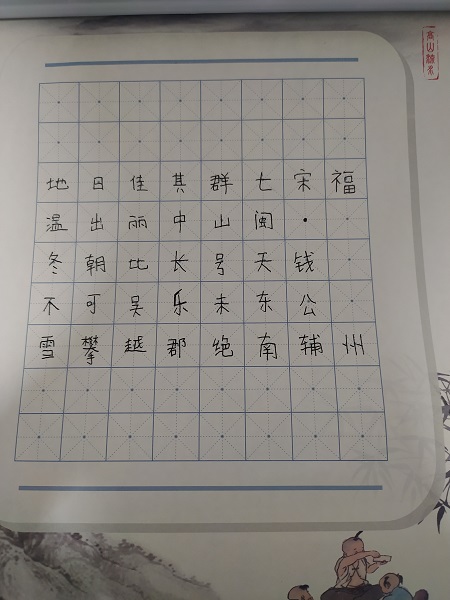 福州
宋·钱公辅
七闽天东南
群山号未绝
其中长乐郡
佳丽比吴越
日出朝可攀
地温冬不雪